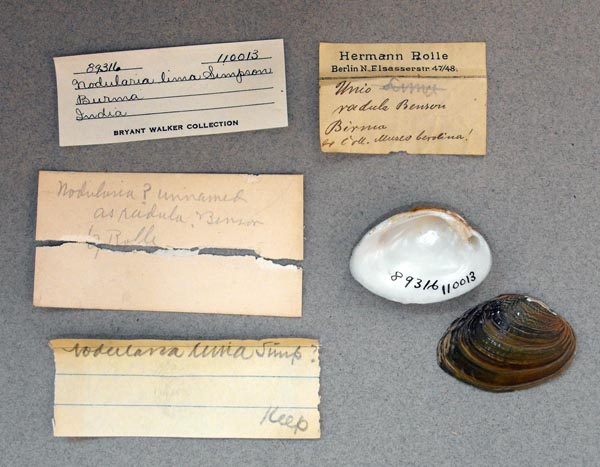 89316 110013
Nodularia lima Simpson
Burma
India
BRYANT WALKER COLLECTION
Hermann Rolle
Berlin N., Elsasserstr. 47/48.
Unio
radula Benson
Birma
Coll. Museo berolina!
Nodularia? unnamed
as radula, Benson
by Rolle
Nodularia lima Simp?
Keep
89316 110013